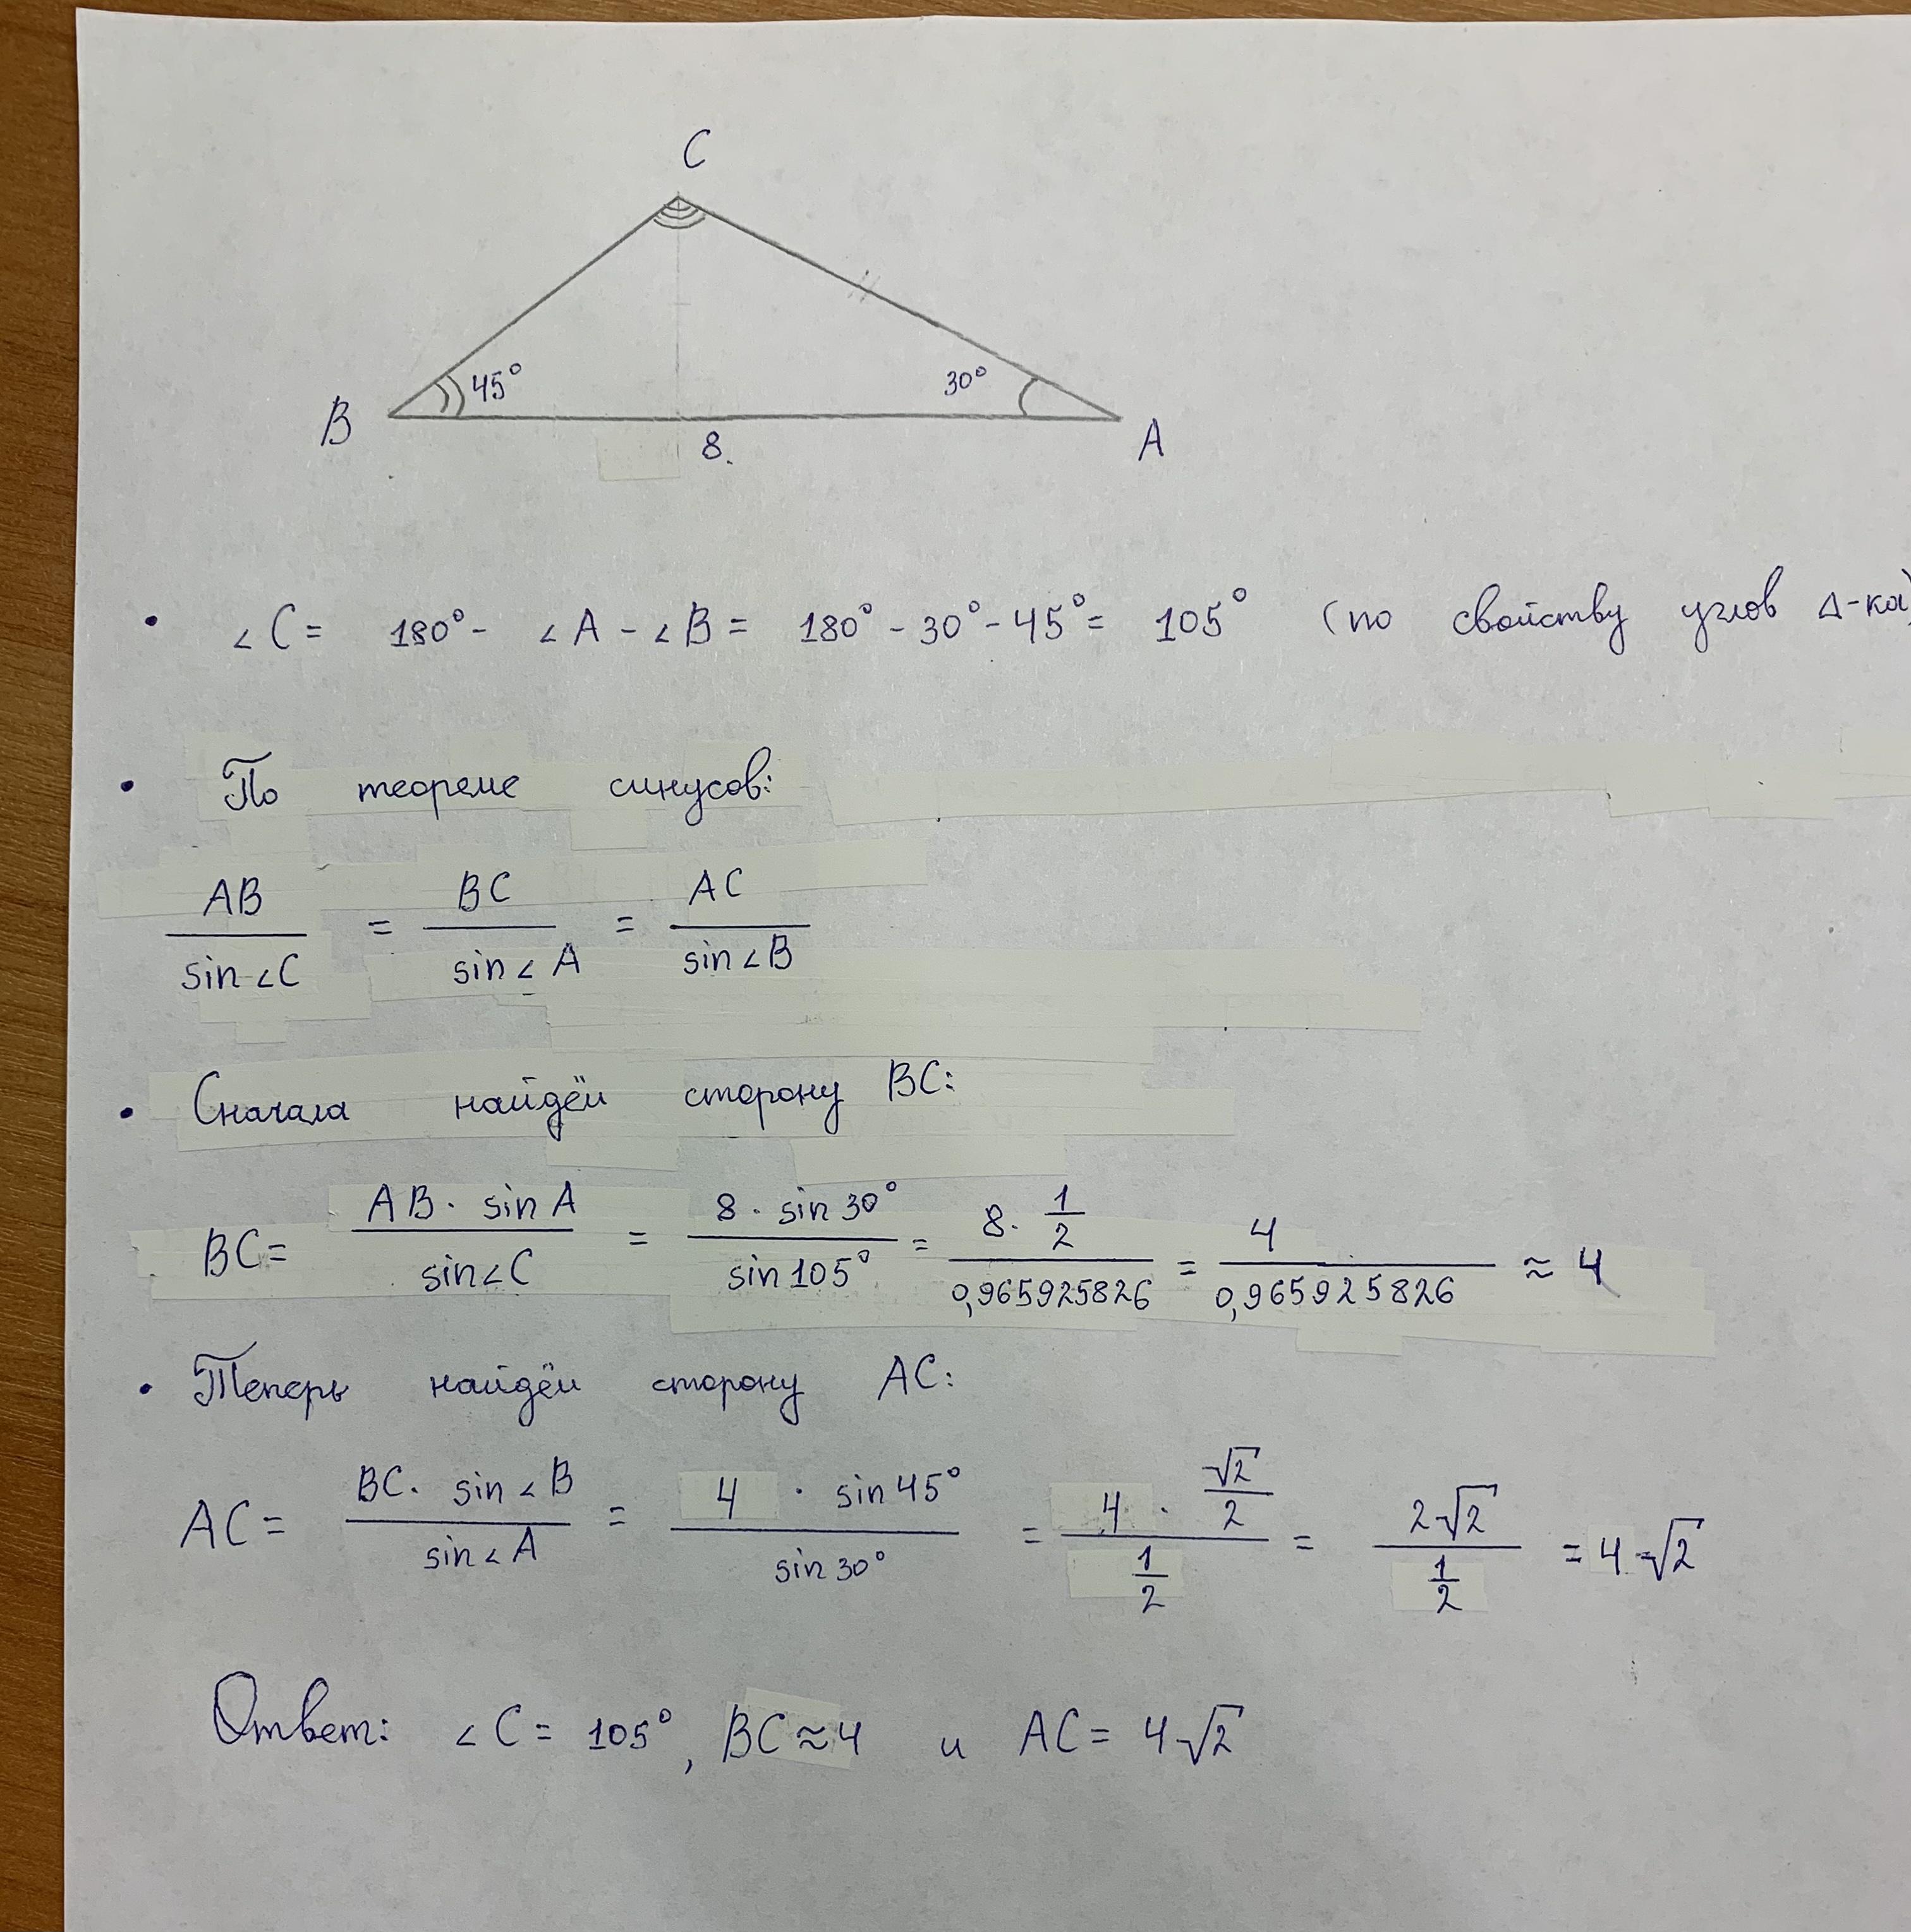 C
45°
30°
B
8.
A
• ∠C = 180° - ∠A - ∠B = 180° - 30° - 45° = 105° (по свойству углов Δ-ка)
• По теореме синусов:
AB/sin∠C = BC/sin∠A = AC/sin∠B
• Сначала найдём сторону BC:
BC = (AB · sin A)/(sin∠C) = (8 · sin 30°)/(sin 105°) = (8 · 1/2)/(0,965925826) = 4/(0,965925826) ≈ 4
• Теперь найдём сторону AC:
AC = (BC · sin∠B)/(sin∠A) = (4 · sin 45°)/(sin 30°) = (4 · √2/2)/(1/2) = (2√2)/(1/2) = 4√2
Ответ: ∠C = 105°, BC ≈ 4 и AC = 4√2